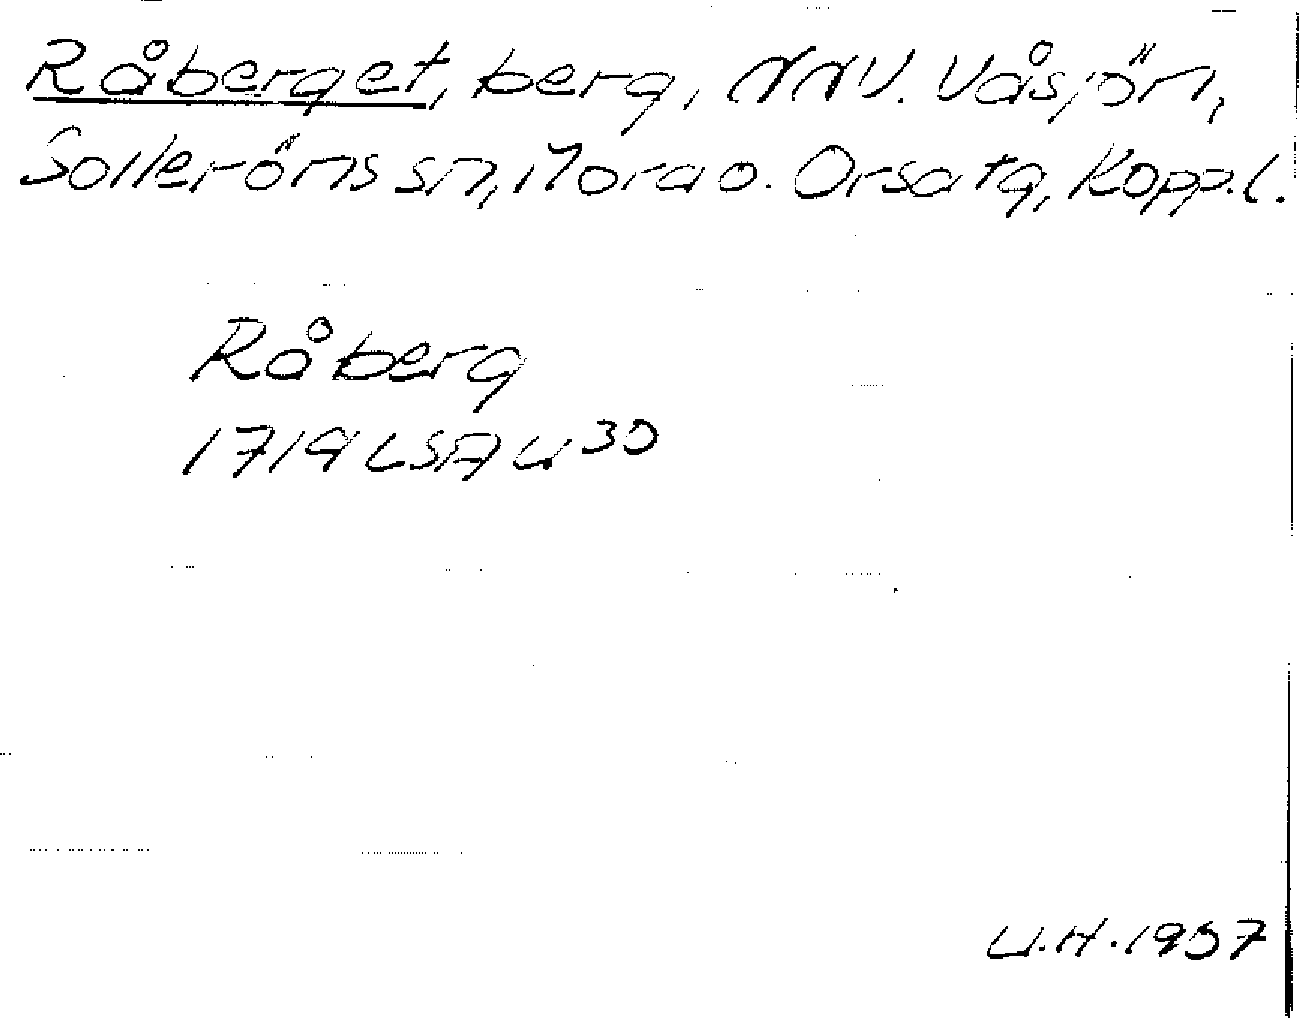 Råberget, berg, NNV. Våsjön,
Solleröns sn, Mora o. Orsa tg, Kopp.l.
Råberg
1719 LSA U 30
U.H. 1957